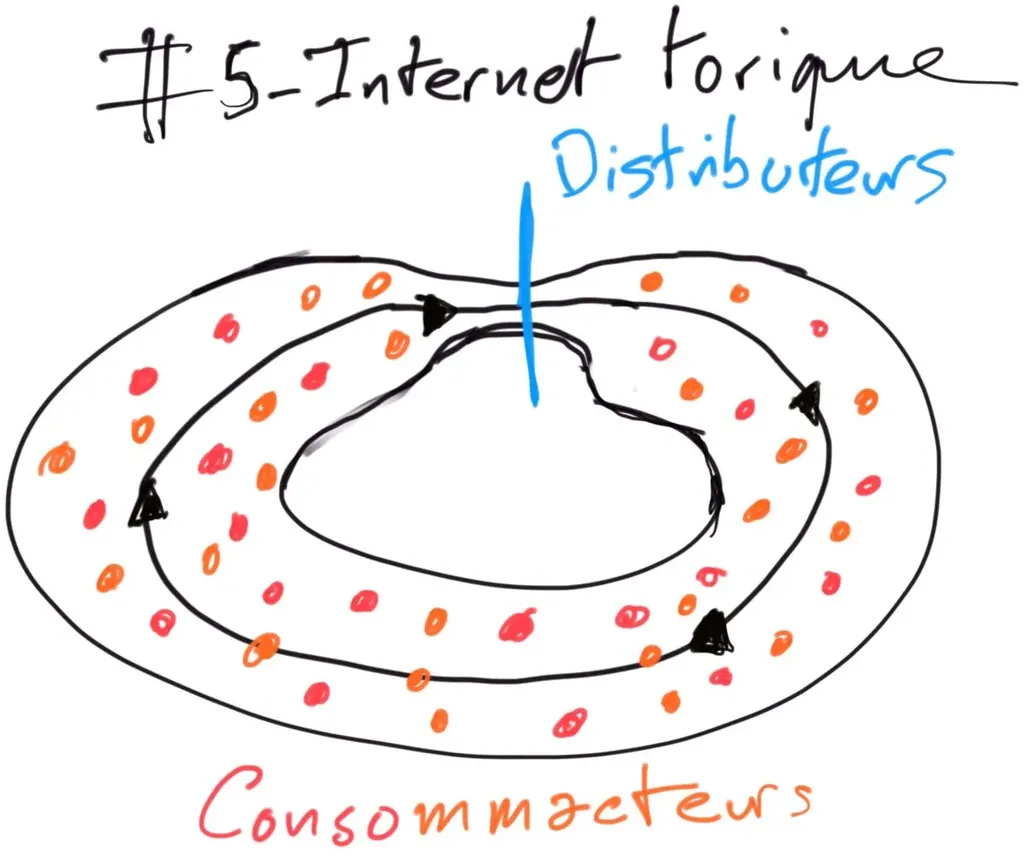 #5-Internet torique
Distributeurs
Consommacteurs